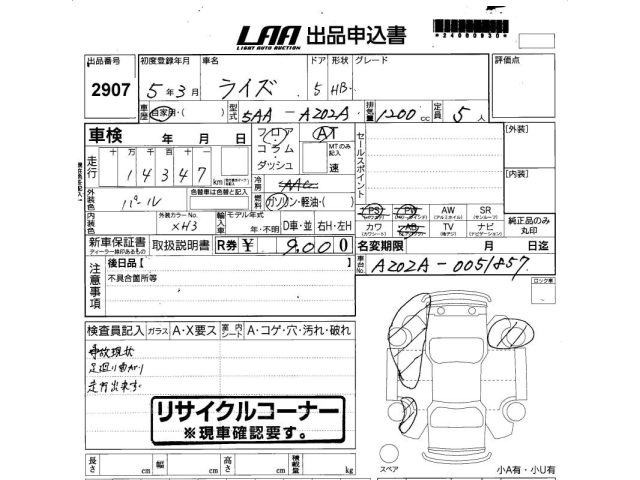 LAA 出品申込書
LIGHT AUTO AUCTION
*24000930*
出品番号 初度登録年月 車名 ドア 形状 グレード 評価点
2907 5年3月 ライズ 5 HB
車歴 自家用・( ) 型式 5AA-A202A 排気量 1200cc 定員 5人
車検 年 月 日 フロア コラム ダッシュ AT MTのみ記入 速 セールスポイント 【外装】
走行 十 万 千 百 十 一
14347 km
冷房 AAC
【内装】
外装色 パール 色替車は色替と記入 燃料 ガソリン・軽油・( )
PS PW AW SR
(アルミホイル) (サンルーフ)
内装色 外装カラーNo. XH3 輸入車 モデル年式 年・不明 D車・並 右H・左H
カワ AB TV ナビ 純正品のみ丸印
(カワシート) (地デジ) (ナビゲーション)
新車保証書 取扱説明書 R券 ¥ 9,000 名変期限 月 日迄
ディーラー捺印あるもの
注意事項 後日品【 】 車台No. A202A-0051857
不具合箇所等
ロック有
検査員記入 ガラス A・X要ス 室内シート A・コゲ・穴・汚れ・破れ
事故現状
足廻り曲がり
走行出来ず
リサイクルコーナー
※現車確認要す。
スペア
小A有・小U有
長さ cm 幅 cm 高さ cm 積載量 kg